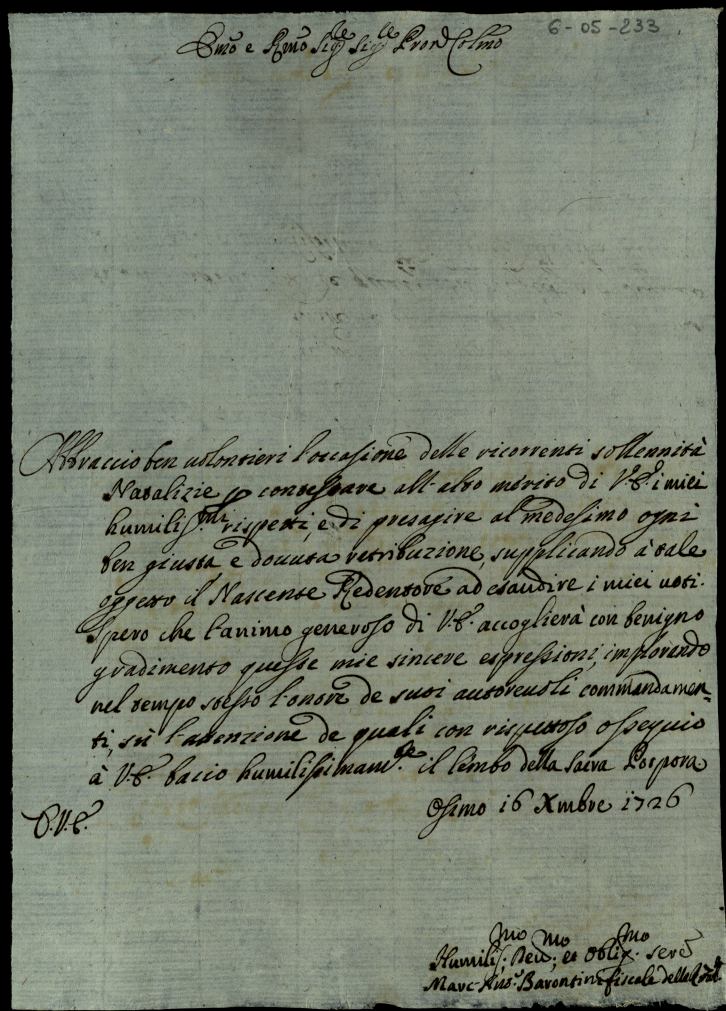 6-05-233
Emo e Rmo Sigre Sigre Pron Colmo
Abbraccio ben uolontieri l'occasione delle ricorrenti sollennità
Natalizie p contestare all'alto mérito di V.E. i miei
humilissmi rispetti, e di presagire al medesimo ogni
ben giusta e douuta retribuzione, supplicando à tale
oggetto il Nascente Redentore ad esaudire i miei uoti.
Spero che l'animo generoso di V.E. accoglierà con benigno
gradimento queste mie sincere espressioni, implorando
nel tempo stesso l'onore de suoi autoreuoli commandamen-
ti, sù l'attenzione de quali con rispettoso ossequio
à V.E. bacio humilissimamte il lembo della Sacra Porpora
Osimo 16 Xmbre 1726
D.V.E.
Humilissmo Deumo et Obligmo sere
Marc-Anto Barontini fiscale della